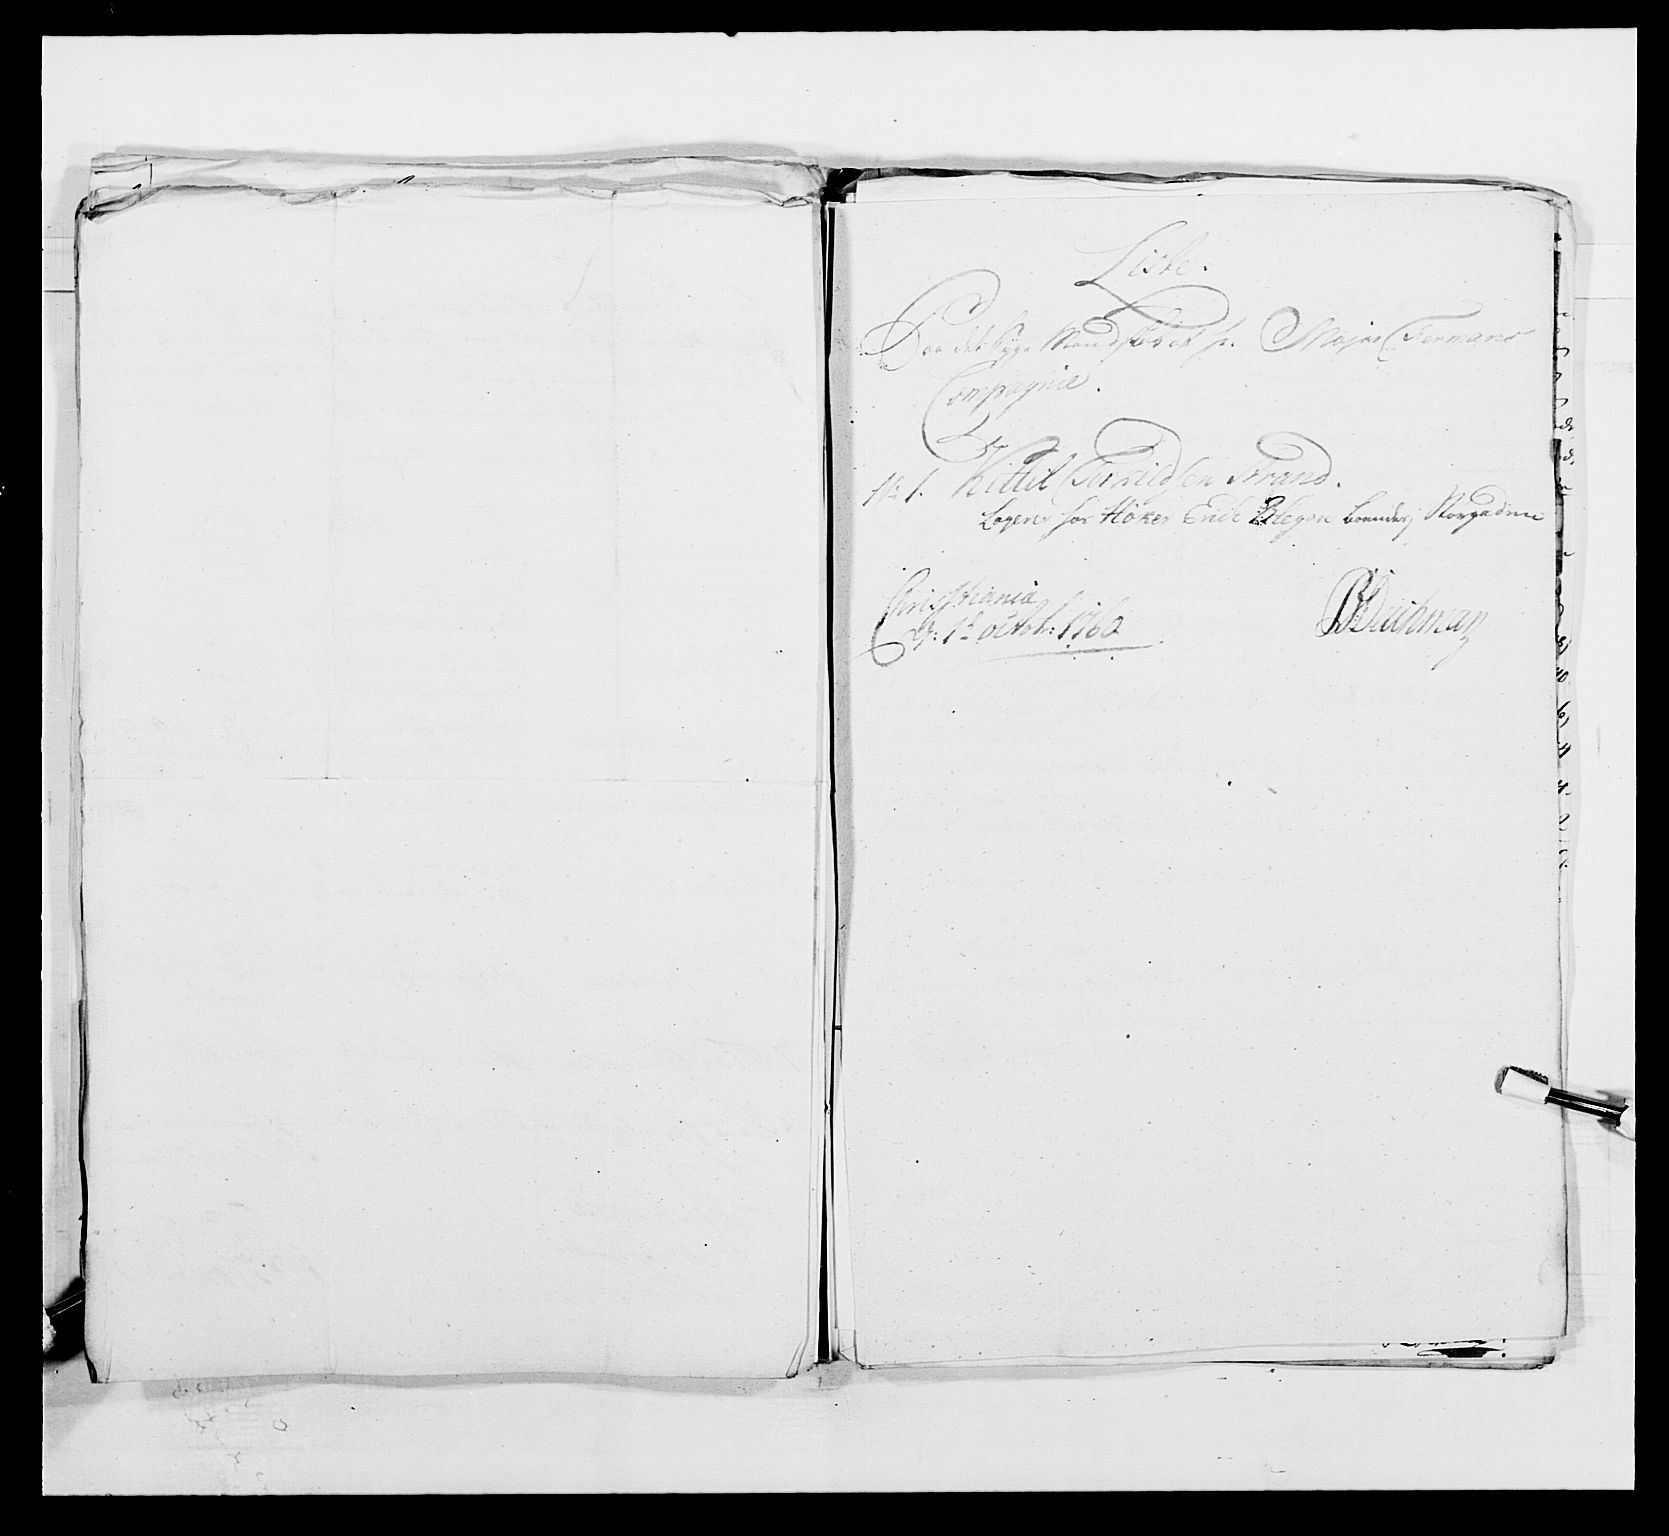 Liste.
Paa det Syge Mandskab af hr. Major Fermans
Compagnie.
No 1. Kittil Terkildsen Strand.
Logerer hos Høker Erich Blegen boende i Storgaden
Christiania
d: 1t octob: 1762
Deichman